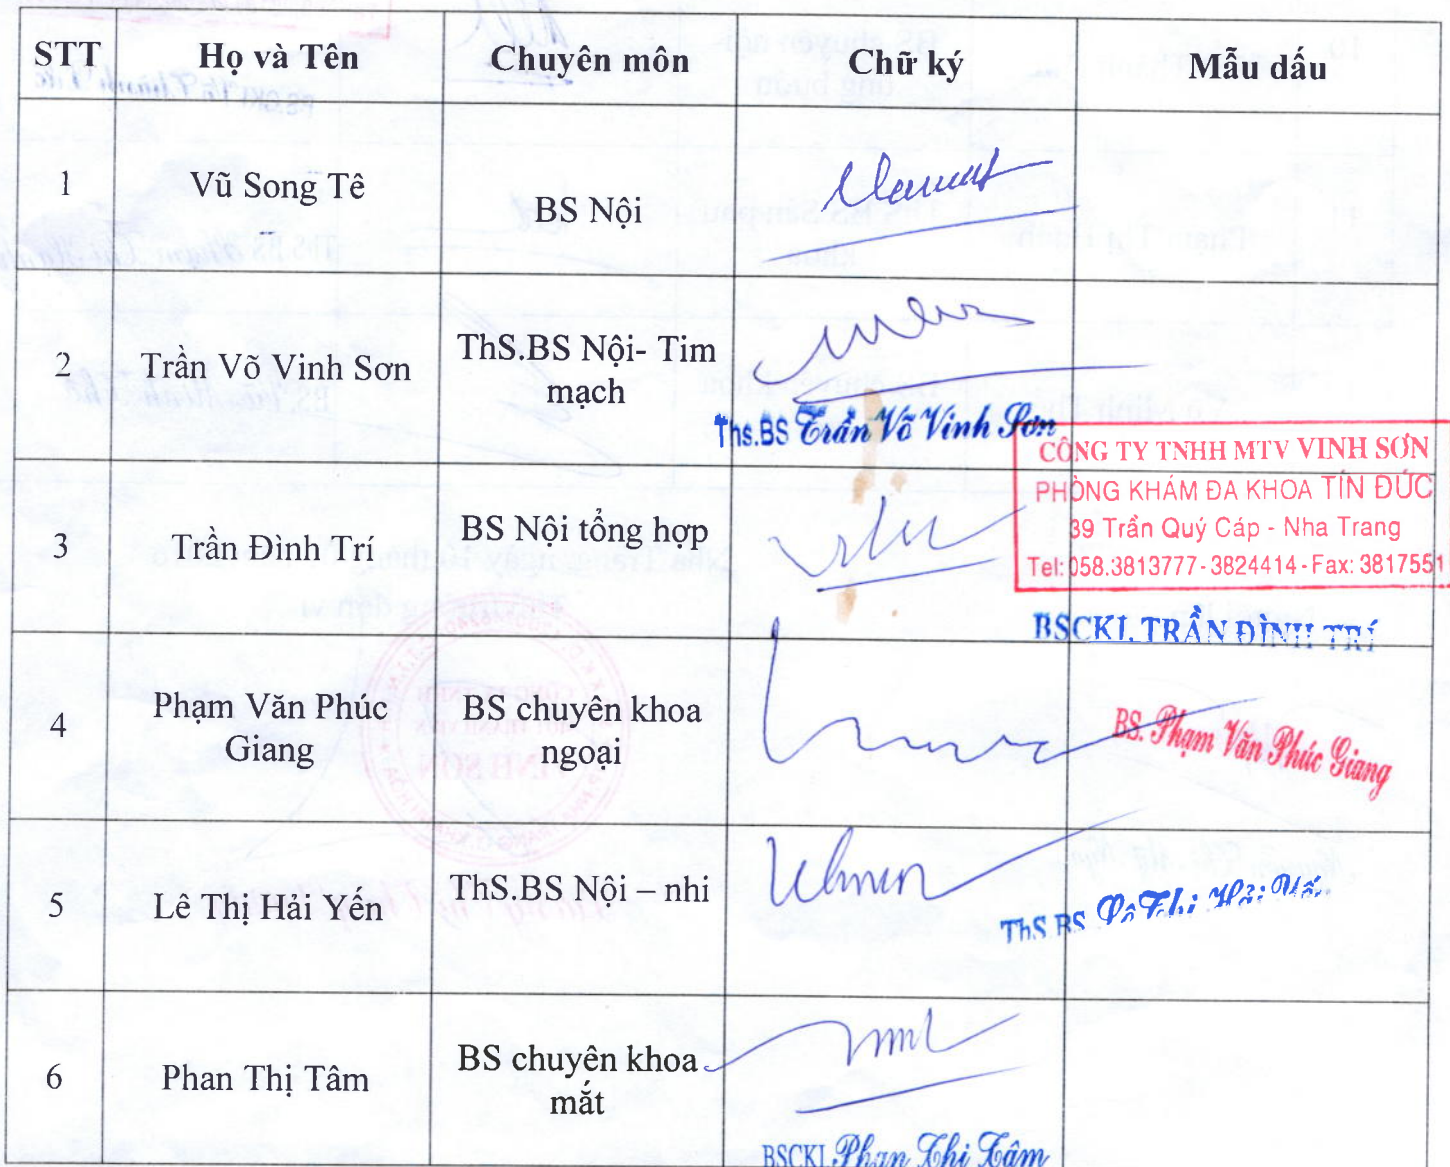 STT Họ và Tên Chuyên môn Chữ ký Mẫu dấu
1 Vũ Song Tê BS Nội
2 Trần Võ Vinh Sơn ThS.BS Nội- Tim
mạch
Ths.BS Trần Võ Vinh Sơn
CÔNG TY TNHH MTV VINH SƠN
PHÒNG KHÁM ĐA KHOA TÍN ĐỨC
39 Trần Quý Cáp - Nha Trang
Tel: 058.3813777 - 3824414 - Fax: 3817551
3 Trần Đình Trí BS Nội tổng hợp
BSCKI. TRẦN ĐÌNH TRÍ
4 Phạm Văn Phúc
Giang
BS chuyên khoa
ngoại
BS. Phạm Văn Phúc Giang
5 Lê Thị Hải Yến ThS.BS Nội – nhi
ThS BS Lê Thị Hải Yến
6 Phan Thị Tâm BS chuyên khoa
mắt
BSCKI. Phan Thị Tâm